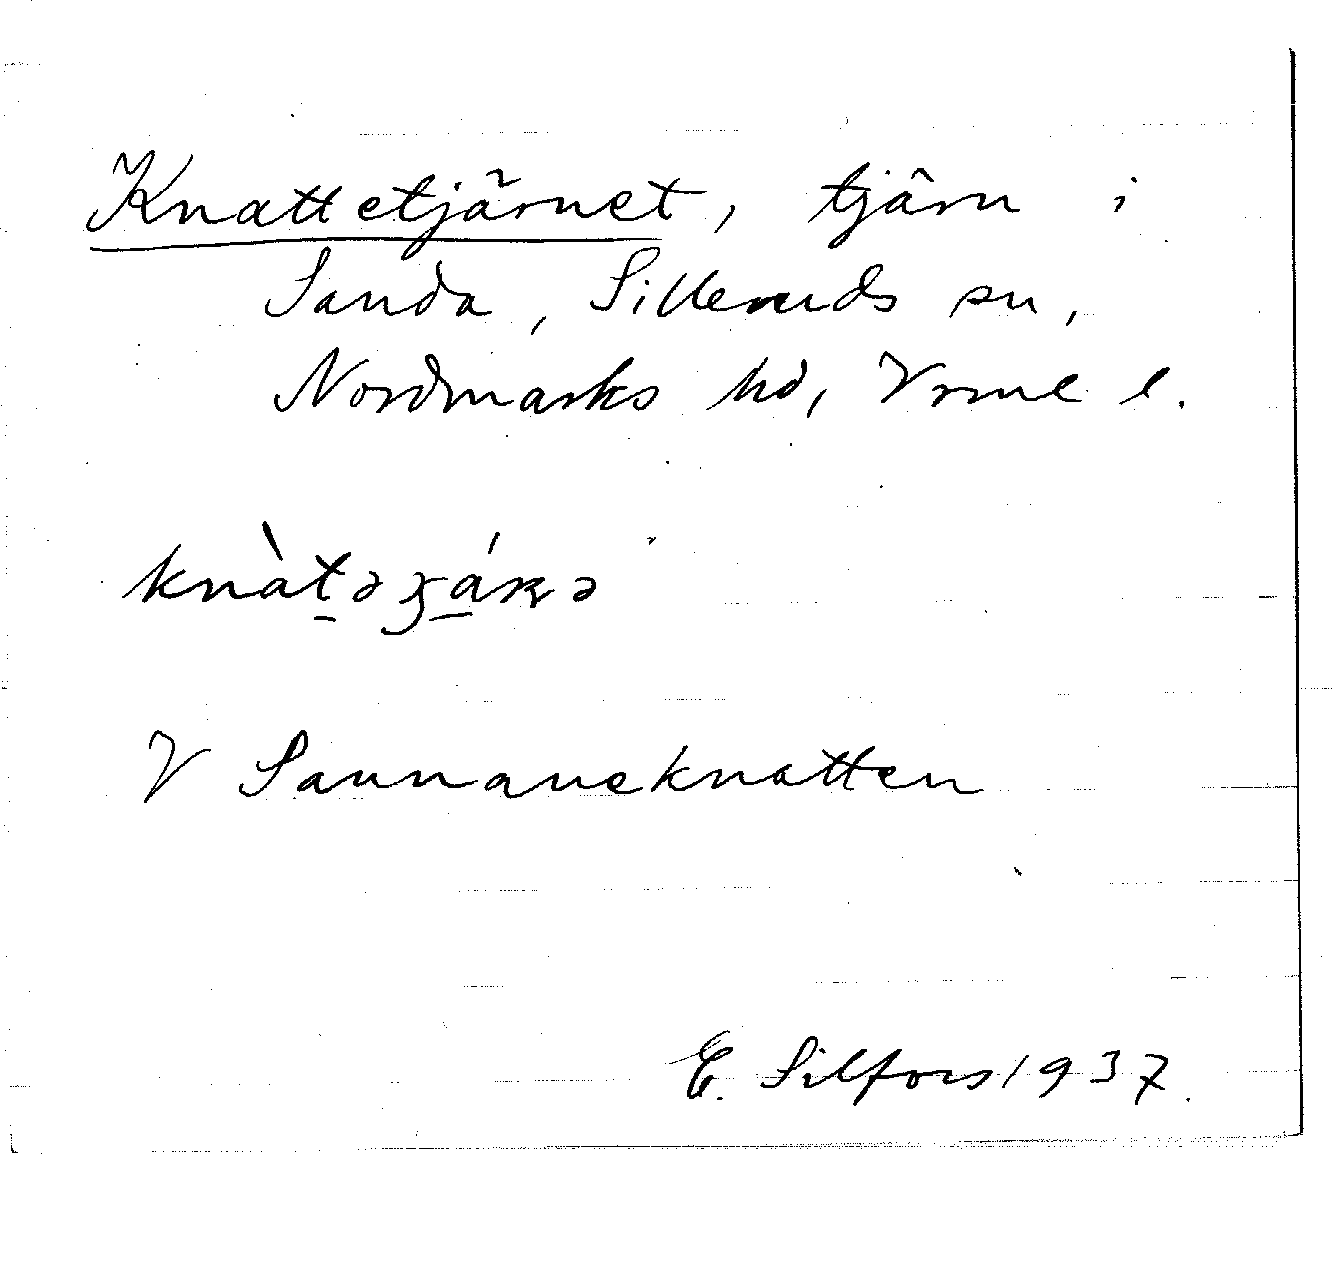 Knattetjärnet, tjärn i
Sanda, Silleruds sn,
Nordmarks hd, Vrml l.
knàt̠əʒá̠ɴ̨ə
V Sannaneknatten
E. Silfors 1937.